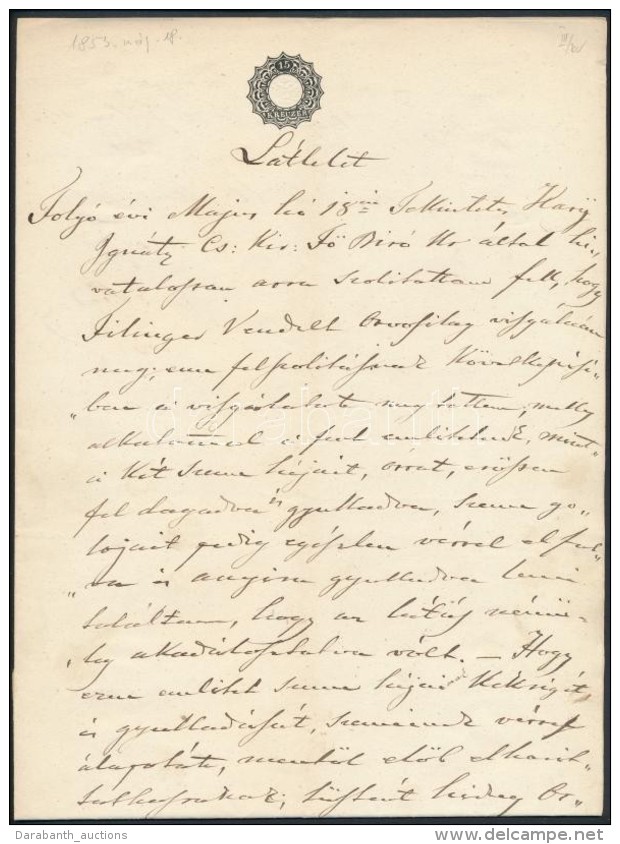 1853. máj. 18.
15
KREUZER
Látlelet
Folyó évi Május hó 18án Tekintetes Kary
Ignátz Cs: Kir: Fő Biró Ur által hi„
vatalossan arra szolitattam fell, hogy
Filinger Vendelt Orvosilag visgálnám
meg; ezen felszolitásnak Következtési„
„ban a visgálatot meg tettem, melly
alkalommal a fent emlitettnek, mint„
a Két szeme héjait, orrát, erőssen
fel dagadva és gyulladva, szeme go„
lojait pedig egészlen vérrel el fut„
„va és anyira gyulladva lenni
találtam, hogy az látás némü„
„leg akadályoztatva vólt. — Hogy
ezen emlitt szeme héjai Kékségét,
és gyulladását, szemeinek vérrel
álapotát, mentöl elöb elhárit„
hideg bo„
darabanth
Darabanth_auctions